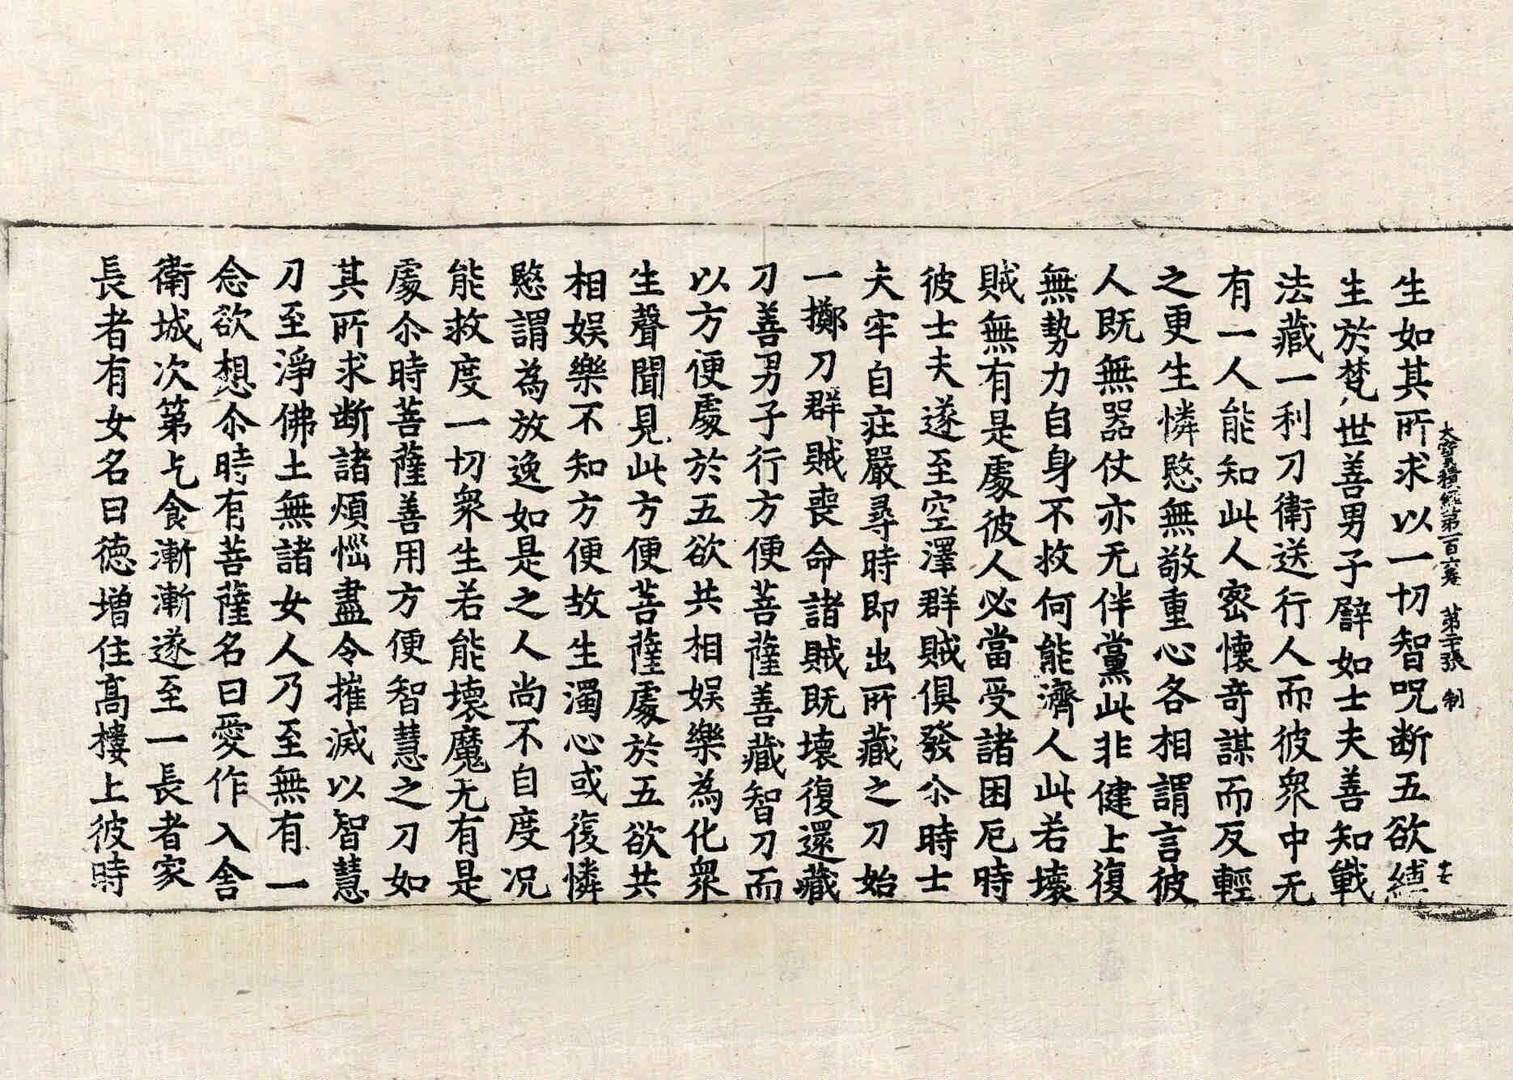 大寳積經第一百六卷 第二十張 制
生如其所求以一切智呪断五欲縛
生於梵世善男子譬如士夫善知戰
法藏一利刀衛送行人而彼衆中无
有一人能知此人密懷竒謀而反輕
之更生憐愍無敬重心各相謂言彼
人既無器仗亦无伴黨此非健士復
無勢力自身不救何能濟人此若壞
賊無有是處彼人必當受諸困厄時
彼士夫遂至空澤群賊俱發尒時士
夫牢自莊嚴尋時即出所藏之刀始
一擲刀群賊喪命諸賊既壞復還藏
刀善男子行方便菩薩善藏智刀而
以方便處於五欲共相娛樂為化衆
生聲聞見此方便菩薩處於五欲共
相娛樂不知方便故生濁心或復憐
愍謂為放逸如是之人尚不自度况
能救度一切衆生若能壞魔无有是
處尒時菩薩善用方便智慧之刀如
其所求断諸煩惱盡令摧滅以智慧
刀至淨佛土無諸女人乃至無有一
念欲想尒時有菩薩名曰愛作入舍
衛城次第乞食漸漸遂至一長者家
長者有女名曰德增住髙樓上彼時